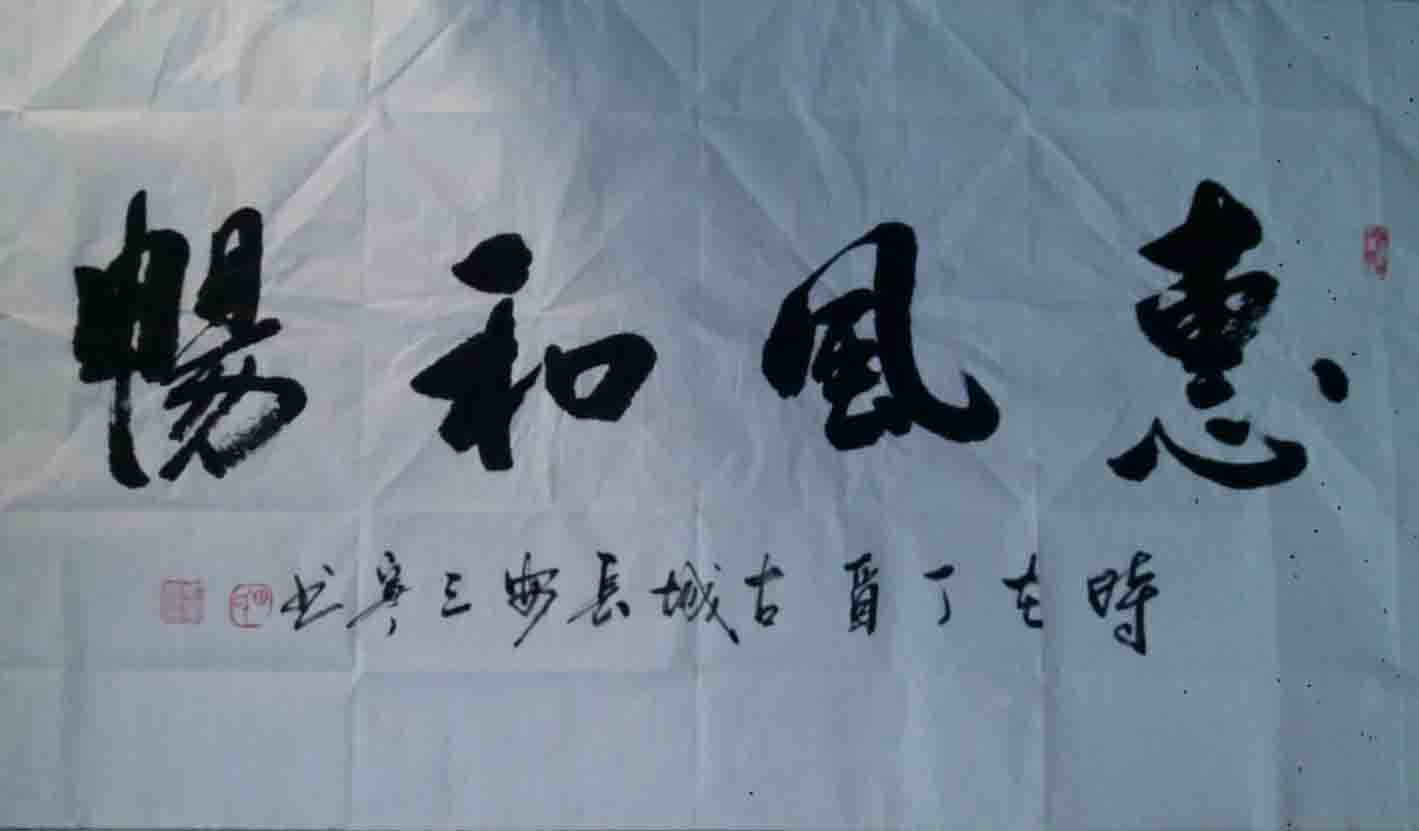 惠風和暢
時在丁酉古城長安三寧書